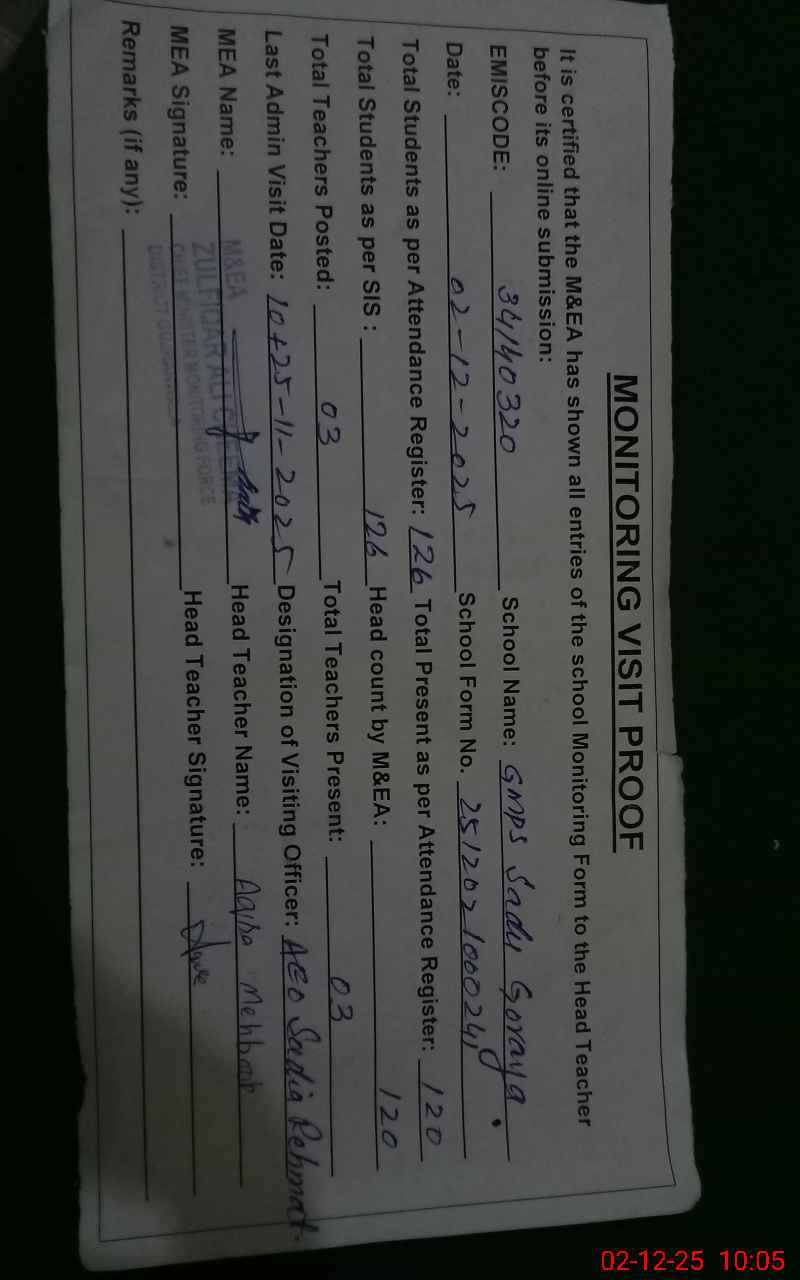 MONITORING VISIT PROOF
It is certified that the M&EA has shown all entries of the school Monitoring Form to the Head Teacher
before its online submission:
EMISCODE: 34140320 School Name: GMPS Sadu Goraya.
Date: 02-12-2025 School Form No. 2512021000241
Total Students as per Attendance Register: 126 Total Present as per Attendance Register: 120
Total Students as per SIS : 126 Head count by M&EA: 120
Total Teachers Posted: 03 Total Teachers Present: 03
Last Admin Visit Date: 10+25-11-2025 Designation of Visiting Officer: AEO Sadia Rehmat.
MEA Name: Head Teacher Name: Aqiba Mehboob
MEA Signature: Head Teacher Signature:
Remarks (if any):
M&EA
ZULFIQAR ALI
CHIEF MINISTER MONITORING FORCE
DISTRICT
02-12-25 10:05